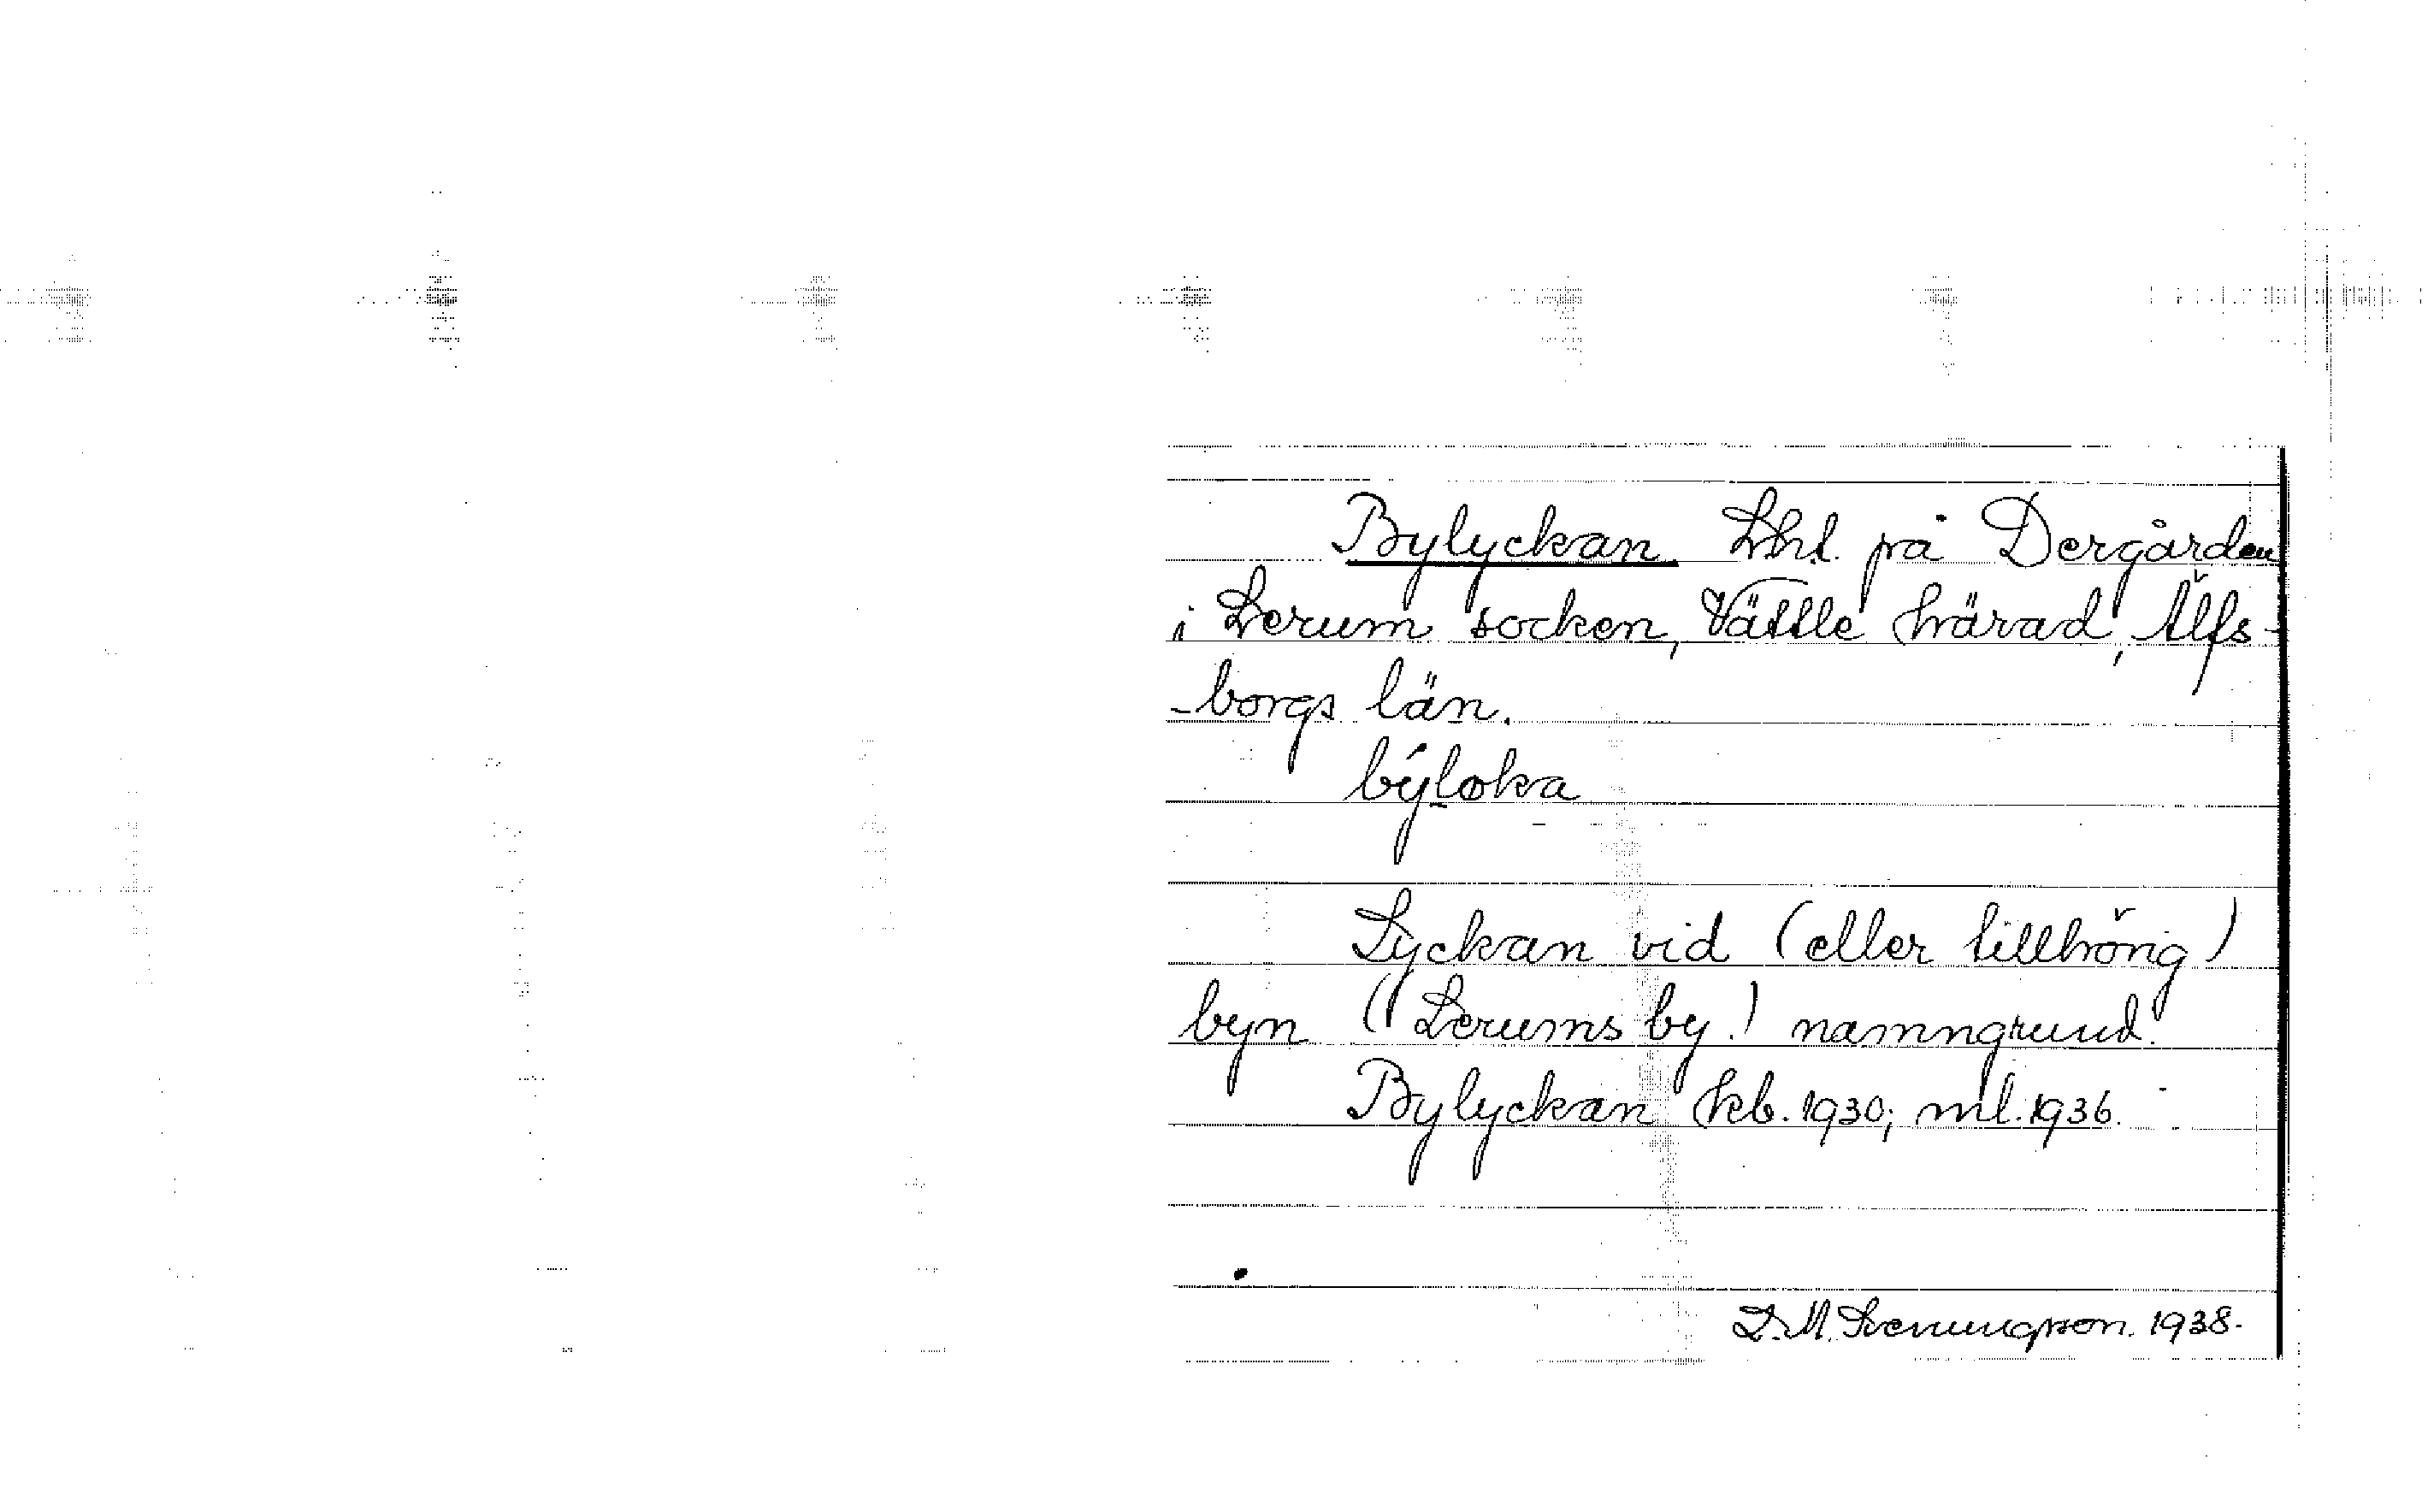 Bylyckan Lht. på Dergården
i Lerum socken, Vättle härad, Älfs-
-borgs län.
býløka
Lyckan vid (eller tillhörig)
byn (Lerums by.) namngrund.
Bylyckan kb. 1930; ml. 1936.
D.M. Svenungsson. 1938.